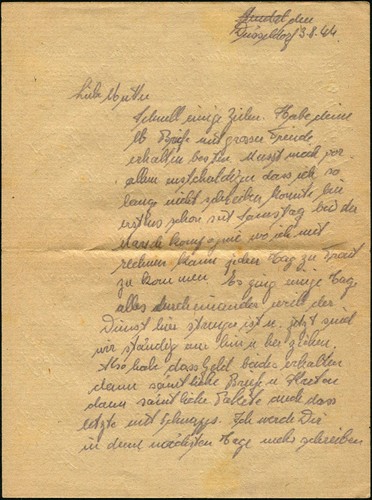 den
Düsseldorf 3.8.44.
Liebe Mutter
Schnell einige Zeilen. Habe deine
Briefe mit grosser Freude
erhalten besten. Musst mich vor
allem entschuldigen dass ich so
lange nicht schreiben konnte bin
erstens schon seit Samstag bei der
Marsch kompanie wo ich mit
rechnen kann jeden Tag zu Front
zu kommen. Es ging einige Tage
alles durcheinander weil der
Dienst hier strenger ist u. jetzt sind
wir ständig am hin u her ziehen.
Also habe dass Geld beides erhalten
dann sämtliche Briefe u. Karten
dann sämtliche Pakete auch dass
letzte mit Schnapps. Ich werde Dir
in den nächsten Tage mehr schreiben